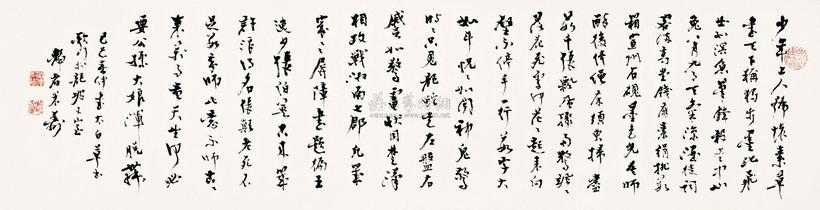 少年上人號懷素草
書天下稱獨步墨池飛
出北溟魚筆鋒殺盡中山
兔八月九月天氣涼酒徒詞
客滿高堂箋麻素絹排數
箱宣州石硯墨色光吾師
醉後倚繩床須臾掃盡
數千張飄風驟雨驚颯颯
落花飛雪何茫茫起來向
壁不停手一行數字大
如斗怳怳如聞神鬼驚
時時只見龍蛇走左盤右
蹙如驚電狀同楚漢
相攻戰湖南七郡凡幾
家家屏障書題遍王
逸少張伯英古來幾
許浪得名張顛老死不
足數我師此義不師古古
來萬事貴天生何必
要公孫大娘渾脫舞
己巳春仲書太白草書
歌行於